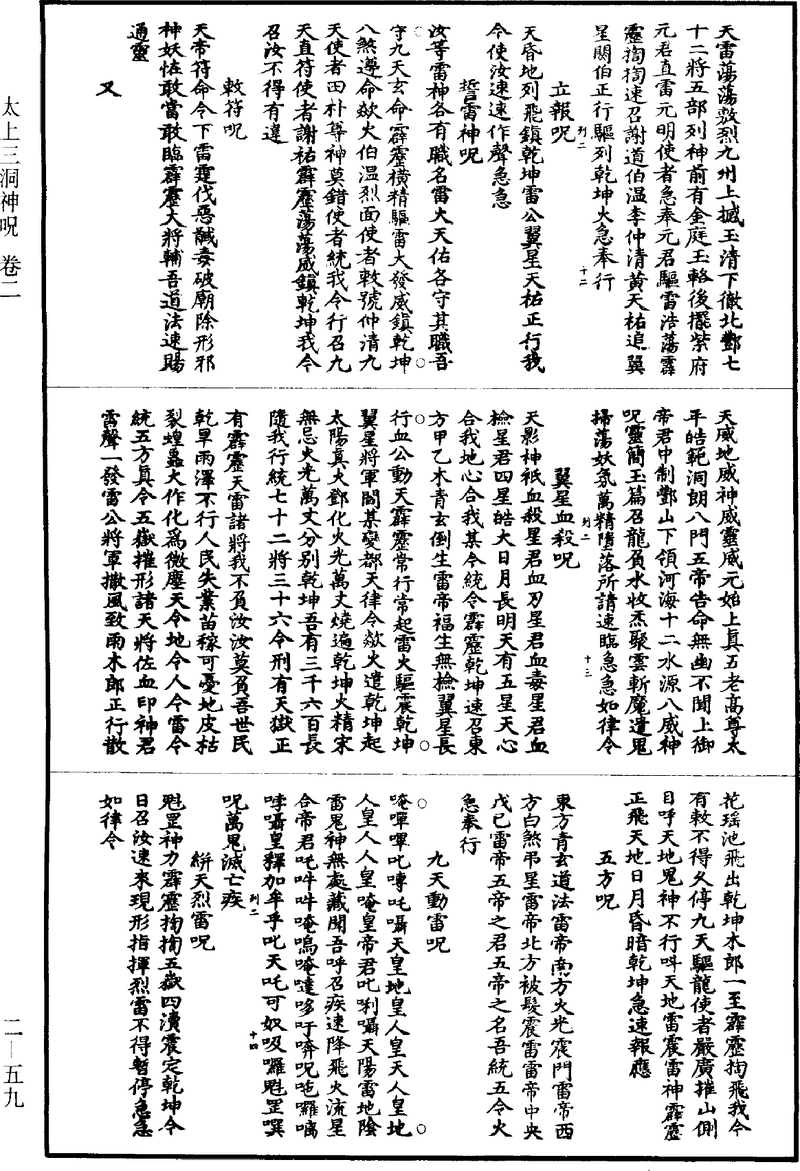 太上三洞神呪　卷二
二—五九
天雷蕩蕩敷烈九州上撼玉清下徹北酆七
十二將五部列神前有金庭玉輅後擺紫府
元君直雷元明使者急奉元君驅雷浩蕩霹
靂掏掏速召謝道伯温李仲清黃天祐追翼
星闕伯正行驅列乾坤火急奉行
列二
十二
立報呪
天昏地列飛鎮乾坤雷公翼星天祐正行我
令使汝速速作聲急急
誓雷神呪
汝等雷神各有職名雷火天佑各守其職吾
守九天玄命霹靂橫精驅雷大發威鎮乾坤
八煞遵命欻火伯温烈面使者敕號仲清九
天使者田朴尊神莫錯使者統我令行召九
天直符使者謝祐霹靂蕩蕩威鎮乾坤我令
召汝不得有違
敕符呪
天帝符命令下雷霆伐惡馘毒破廟除形邪
神妖怪敢當敢臨霹靂大將輔吾道法速賜
通靈
又
天威地威神威靈威元始上真五老高尊太
平皓範洞朗八門五帝告命無幽不聞上御
帝君中制酆山下領河海十二水源八威神
呪靈簡玉篇召龍負水收炁聚雲斬魔遣鬼
掃蕩妖氛萬精墮落所請速臨急急如律令
列二
十三
翼星血殺呪
天影神祇血殺星君血刃星君血毒星君血
檢星君四星皓大日月長明天有五星天心
合我地心合我某令統令霹靂乾坤速召東
方甲乙木青玄倒生雷帝福生無檢翼星長
行血公動天霹靂常行常起雷火驅震乾坤
翼星將軍閻某變都天律令欻火遣乾坤起
太陽真火酆化火光萬丈燒遍乾坤火精宋
無忌火光萬丈分別乾坤吾有三千六百長
隨我行統七十二將三十六令刑有天獄正
有霹靂天雷諸將我不負汝汝莫負吾世民
乾旱雨澤不行人民失業苗稼可憂地皮枯
裂蝗蟲大作化爲微塵天令地令人令雷令
統五方真令五嶽摧形諸天將佐血印神君
雷聲一發雷公將軍撒風致雨木郎正行散
花瑶池飛出乾坤木郎一至霹靂掏飛我令
有敕不得久停九天驅龍使者嚴廣摧山側
目呼天地鬼神不行呌天地雷震雷神霹靂
正飛天地日月昏暗乾坤急速報應
五方呪
東方青玄道法雷帝南方火光震門雷帝西
方白煞弔星雷帝北方被髮震雷雷帝中央
戊已雷帝五帝之君五帝之名吾統五令火
急奉行
九天動雷呪
唵嘽嗶叱嘑吒囁天皇地皇人皇天人皇地
人皇人人皇唵皇帝君叱唎囁天陽雷地陰
雷鬼神無處藏聞吾呼召疾速降飛火流星
合帝君吒吽吽唵嗚唵噠哆吁嘝呪咆囉嘀
哱囁皇釋加牟乎叱天吒可奴吺囉魁罡噀
列二
十四
呪萬鬼滅亡疾
絣天烈雷呪
魁罡神力霹靂掏掏五嶽四瀆震定乾坤令
日召汝速來現形指揮烈雷不得暫停急急
如律令